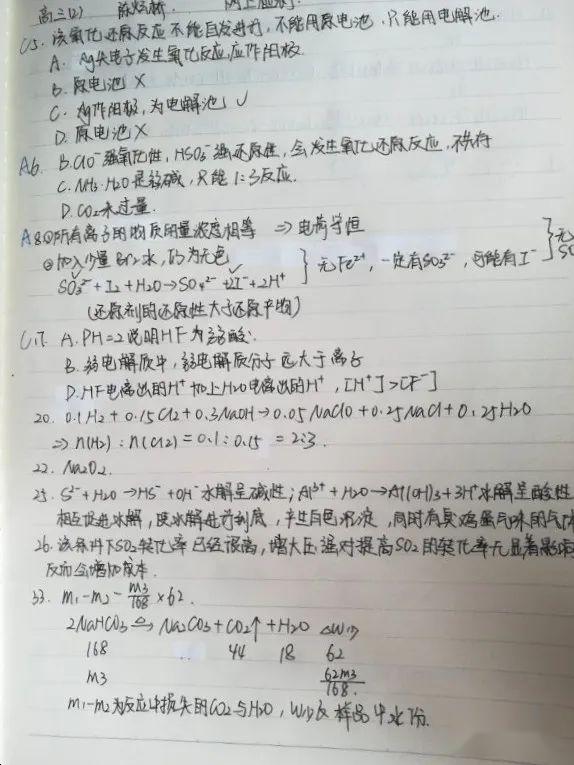 高三(2)
C15. 该氧化还原反应不能自发进行,不能用原电池,只能用电解池.
A. Ag失电子发生氧化反应,应作阳极
B. 原电池 ×
C. Ag作阳极,为电解池 ✓
D. 原电池 ×
A6. B. ClO⁻强氧化性, HSO₃⁻强还原性, 会发生氧化还原反应, 不共存
C. NH₃·H₂O是弱碱, 只能1:3反应.
D. CO₂未过量.
A8 ①所有离子的物质的量浓度相等 ⇒ 电荷守恒
②加入少量Br₂水, 仍为无色
SO₃²⁻ + I₂ + H₂O → SO₄²⁻ + 2I⁻ + 2H⁺
(还原剂的还原性大于还原产物)
} 无Fe²⁺, 一定有SO₃²⁻, 可能有I⁻ } 无
C17. A. PH=2说明HF为弱酸.
B. 弱电解质中, 弱电解质分子远大于离子
D. HF电离出的H⁺加上H₂O电离出的H⁺, [H⁺]>[F⁻]
20. 0.1H₂ + 0.15Cl₂ + 0.3NaOH → 0.05NaClO + 0.25NaCl + 0.25H₂O
⇒ n(H₂) : n(Cl₂) = 0.1 : 0.15 = 2:3.
22. Na₂O₂.
25. S²⁻ + H₂O → HS⁻ + OH⁻ 水解呈碱性; Al³⁺ + H₂O → Al(OH)₃ + 3H⁺ 水解呈酸性
相互促进水解, 使水解进行到底, 产生白色沉淀, 同时有臭鸡蛋气味的气体
26. 该条件下SO₂转化率已经很高, 增大压强对提高SO₂的转化率无显著影响
反而会增加成本.
33. m₁-m₂-m3/168×62.
2NaHCO₃ ⇌ Na₂CO₃ + CO₂↑ + H₂O △W
168 44 18 62
m3 62m3/168.
m₁-m₂为反应中损失的CO₂与H₂O, 样品中水份.